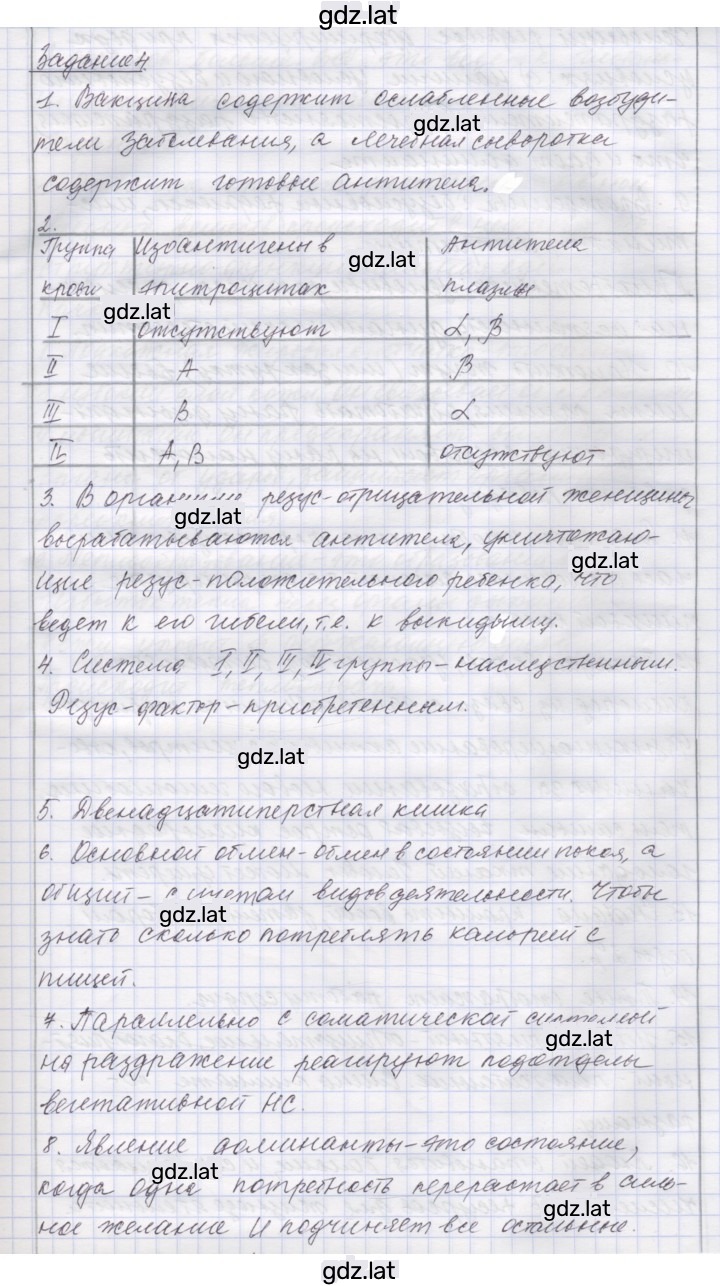 gdz.lat
Задание 4
1. Вакцина содержит ослабленные возбуди-
gdz.lat
тели заболевания, а лечебная сыворотка
содержит готовые антитела.
2.
Группа Изоантигены в Антитела
gdz.lat
крови эритроцитах плазмы
gdz.lat
I отсутствуют α, β
II A β
III B α
IV A, B отсутствуют
3. В организме резус-отрицательной женщины
gdz.lat
вырабатываются антитела, уничтожаю-
gdz.lat
щие резус-положительного ребенка, что
ведет к его гибели, т.е. к выкидышу.
4. Система I, II, III, IV группы - наследственным.
Резус-фактор - приобретенным.
gdz.lat
5. Двенадцатиперстная кишка
6. Основной обмен - обмен в состоянии покоя, а
общий - с учетом видов деятельности. Чтобы
gdz.lat
знать сколько потреблять калорий с
пищей.
7. Параллельно с соматической системой
gdz.lat
на раздражение реагируют подотделы
вегетативной НС.
8. Явление доминанты - это состояние,
gdz.lat
когда одна потребность перерастает в силь-
ное желание и подчиняет все остальные.
gdz.lat